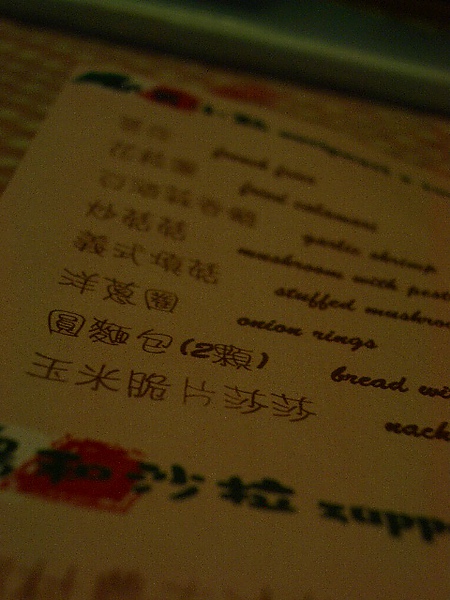 薯條 french fries
花枝圈 fried calamari
garlic shrimp
炒菇菇 mushroom with pest
義式填菇 stuffed mushroo
洋蔥圈 onion rings
圓麵包(2顆) bread wi
玉米脆片莎莎 nach
湯和沙拉 zupp